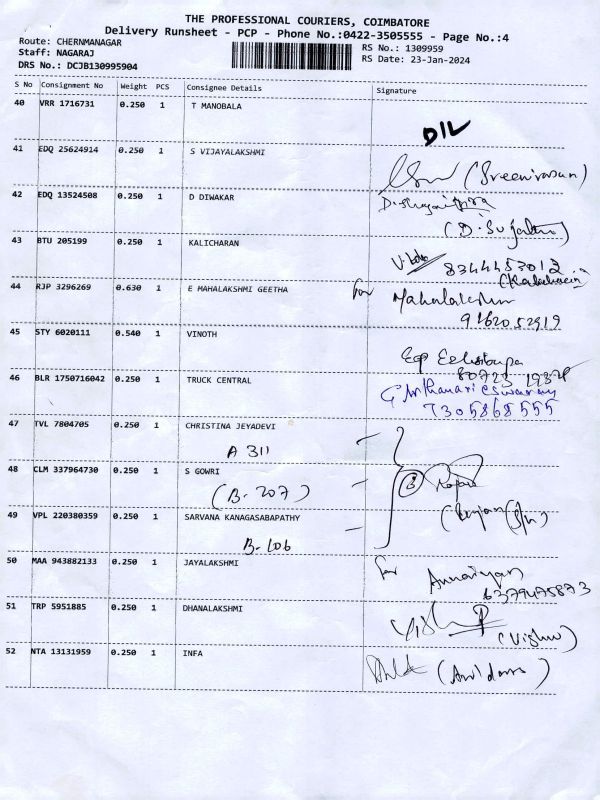 THE PROFESSIONAL COURIERS, COIMBATORE
Delivery Runsheet - PCP - Phone No.:0422-3505555 - Page No.:4
Route: CHERNMANAGAR
RS No.: 1309959
Staff: NAGARAJ
RS Date: 23-Jan-2024
DRS No.: DCJB130995904
S No Consignment No Weight PCS Consignee Details Signature
40 VRR 1716731 0.250 1 T MANOBALA
DIL
41 EDQ 25624914 0.250 1 S VIJAYALAKSHMI
(Sreenivasan)
42 EDQ 13524508 0.250 1 D DIWAKAR
43 BTU 205199 0.250 1 KALICHARAN
8344453012
44 RJP 3296269 0.630 1 E MAHALAKSHMI GEETHA for Mahalakshmi
9162052919
45 STY 6020111 0.540 1 VINOTH
46 BLR 1750716042 0.250 1 TRUCK CENTRAL
7305868555
47 TVL 7804705 0.250 1 CHRISTINA JEYADEVI
A 311
48 CLM 337964730 0.250 1 S GOWRI
(B-207)
49 VPL 220380359 0.250 1 SARVANA KANAGASABAPATHY
B-106
50 MAA 943882133 0.250 1 JAYALAKSHMI for
6379475873
51 TRP 5951885 0.250 1 DHANALAKSHMI
(Vishnu)
52 NTA 13131959 0.250 1 INFA